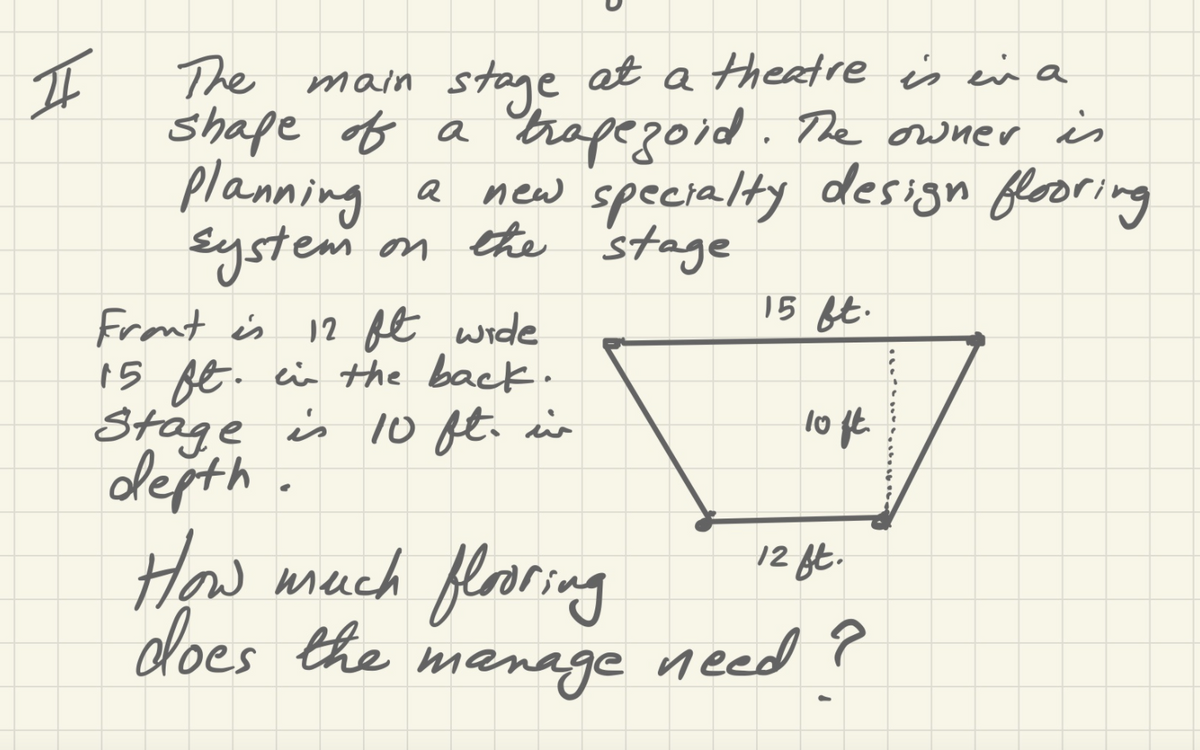 II The main stage at a theatre is in a
shape of a trapezoid. The owner is
planning a new specialty design flooring
system on the stage
Front is 12 ft wide
15 ft. in the back.
Stage is 10 ft. in
depth.
15 ft.
10 ft
12 ft.
How much flooring
does the manage need?